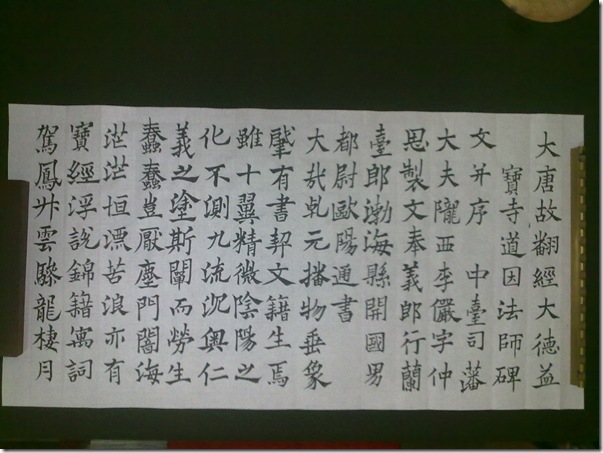 大唐故翻經大德益
寶寺道因法師碑
文并序 中臺司藩
大夫隴西李儼字仲
思製文奉義郎行蘭
臺郎渤海縣開國男
都尉歐陽通書
大哉乹元播物垂象
肇有書契文籍生焉
雖十翼精微陰陽之
化不測九流沉奧仁
義之塗斯闡而勞生
蠢蠢豈厭塵門闇海
茫茫恒漂苦浪亦有
寶經浮說錦籍寓詞
駕鳳升雲驂龍棲月